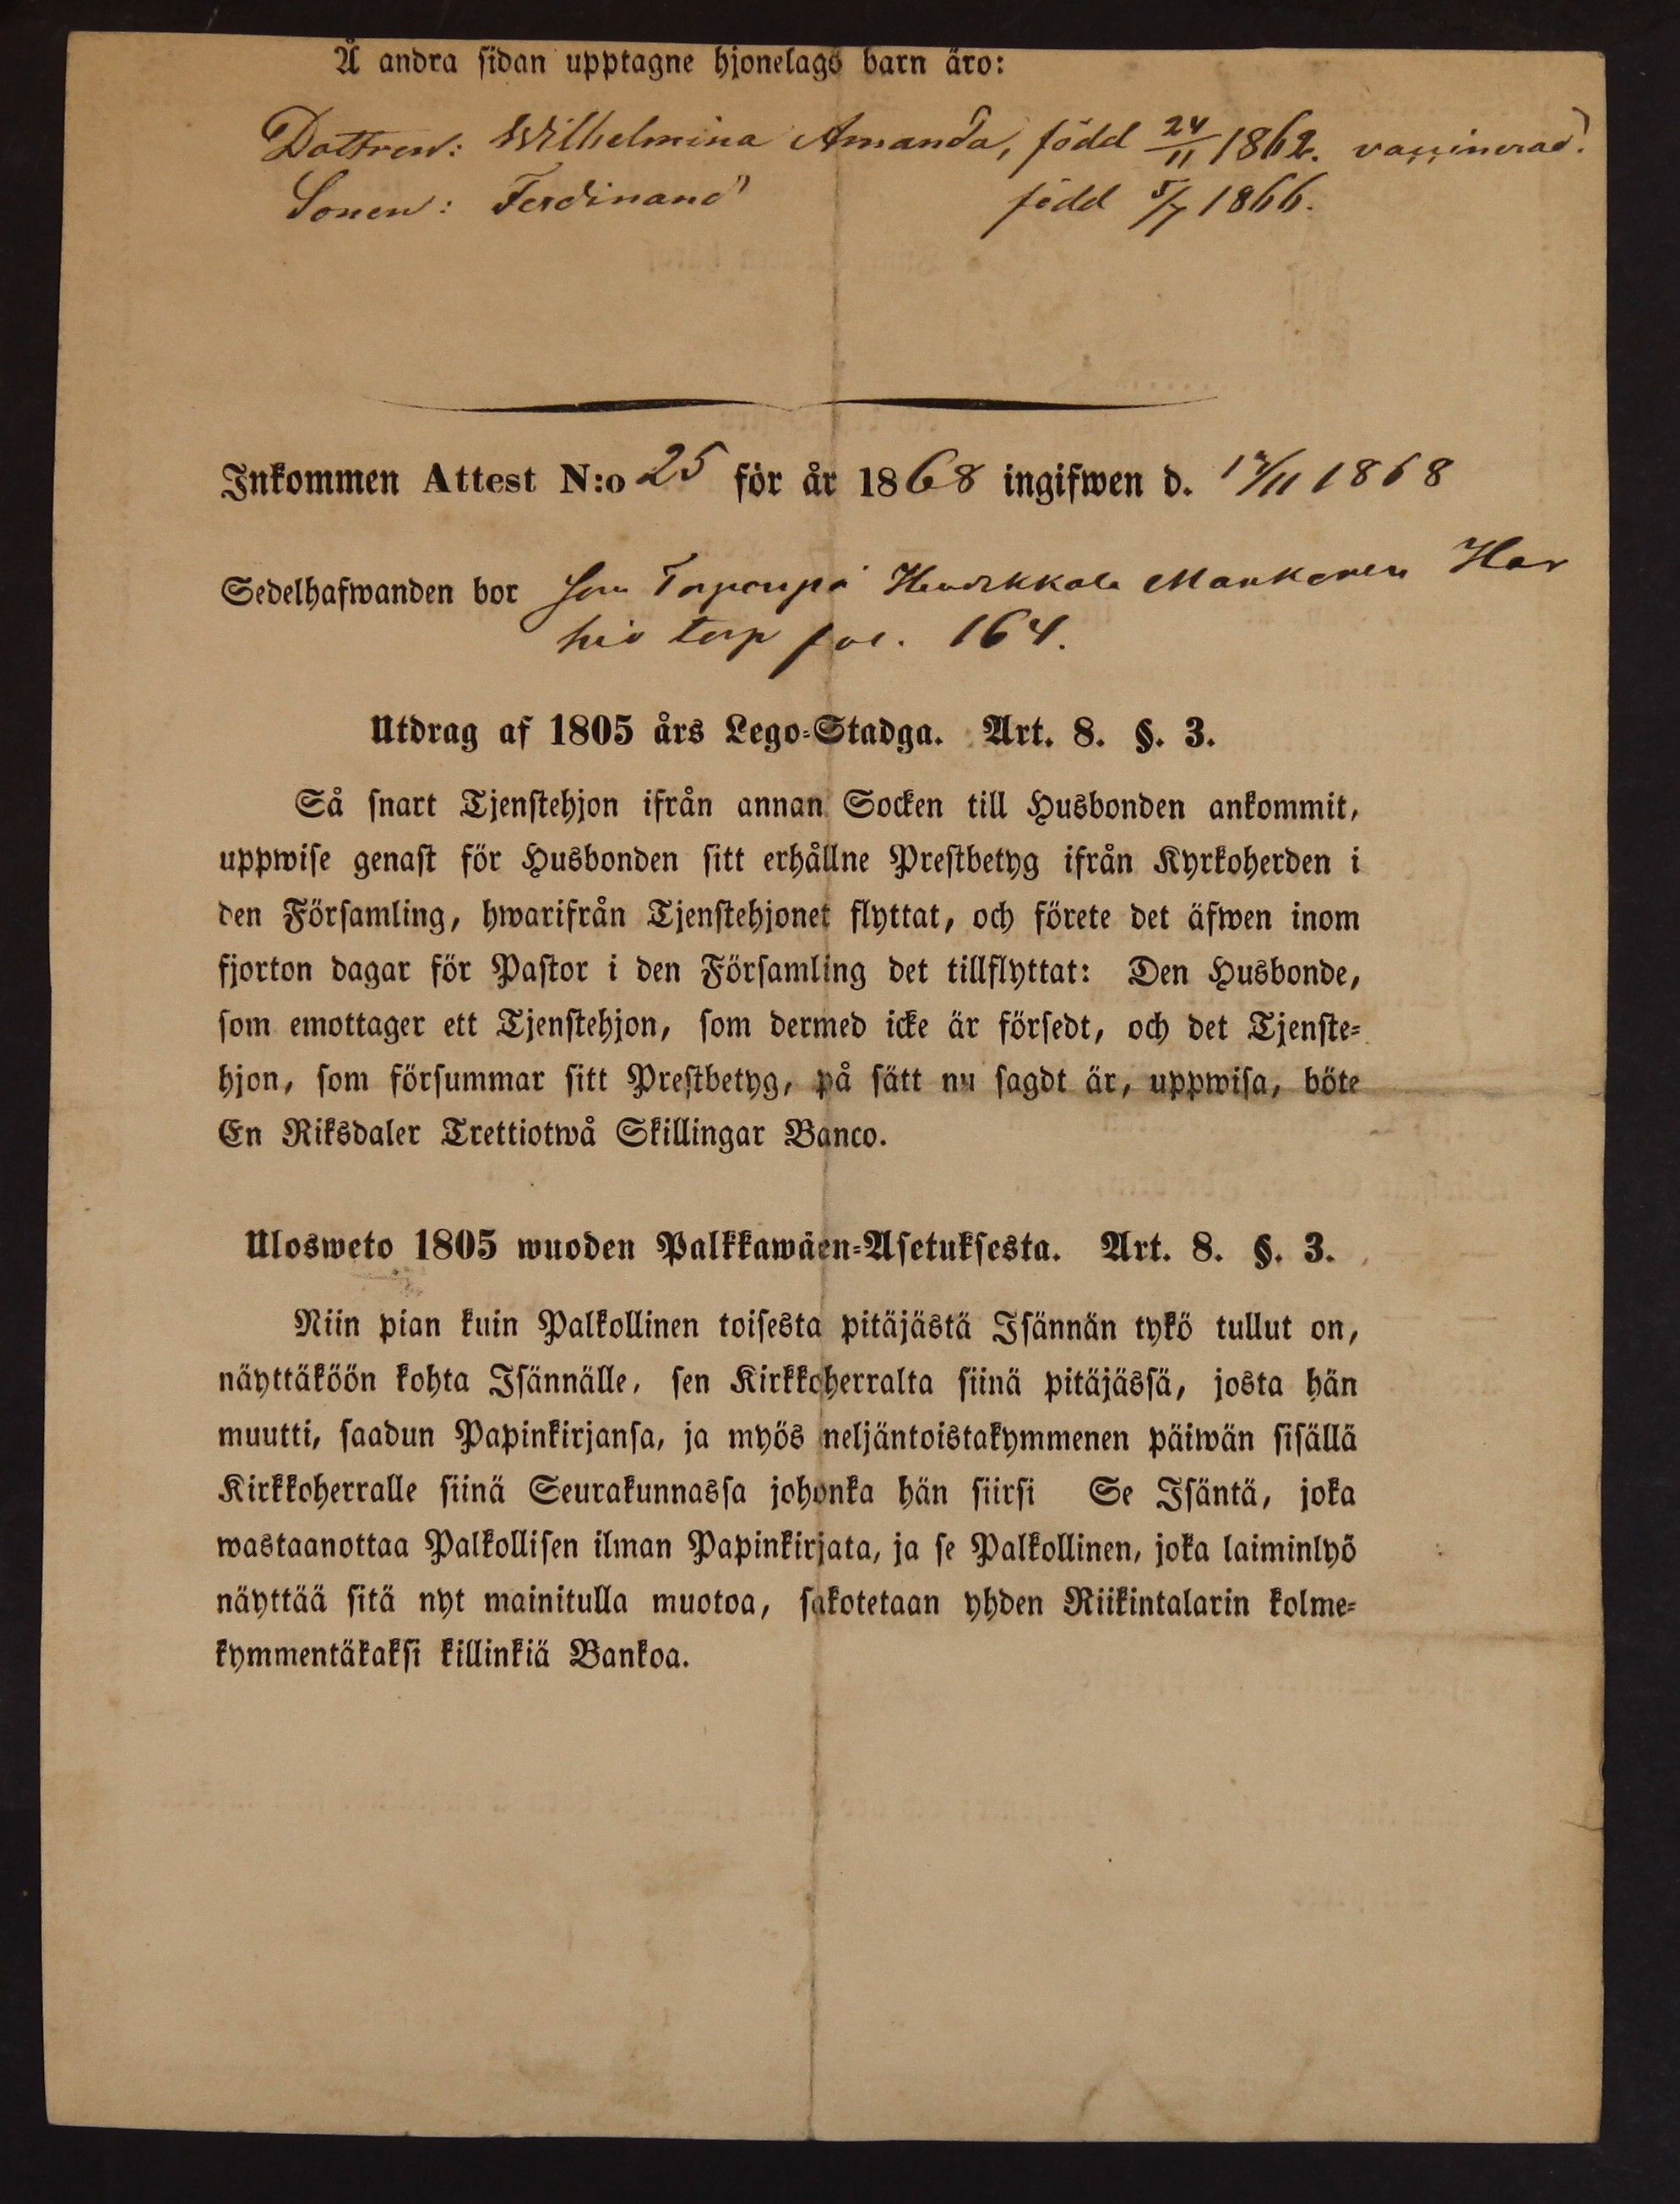 Å andra sidan upptagne hjonelags barn äro:
Dottren: Wilhelmina Amanda, född 24/11 1862. vaccinerad.
Sonen: Ferdinand född 5/7 1866.
Inkommen Attest N:o 25 för år 1868 ingifwen d. 1868
Sedelhafwanden bor som Mankonen Har
hio torp fol. 164.
Utdrag af 1805 års Lego-Stadga. Art. 8. §. 3.
Så snart Tjenstehjon ifrån annan Socken till Husbonden ankommit,
uppwise genast för Husbonden sitt erhållne Prestbetyg ifrån Kyrkoherden i
den Församling, hwarifrån Tjenstehjonet flyttat, och förete det äfwen inom
fjorton dagar för Pastor i den Församling det tillflyttat: Den Husbonde,
som emottager ett Tjenstehjon, som dermed icke är försedt, och det Tjenste-
hjon, som försummar sitt Prestbetyg, på sätt nu sagdt är, uppwisa, böte
En Riksdaler Trettiotwå Skillingar Banco.
Ulosweto 1805 wuoden Palkkawäen-Asetuksesta. Art. 8. §. 3.
Niin pian kuin Palkollinen toisesta pitäjästä Isännän tykö tullut on,
näyttäköön kohta Isännälle, sen Kirkkoherralta siinä pitäjässä, josta hän
muutti, saadun Papinkirjansa, ja myös neljäntoistakymmenen päiwän sisällä
Kirkkoherralle siinä Seurakunnassa johonka hän siirsi Se Isäntä, joka
wastaanottaa Palkollisen ilman Papinkirjata, ja se Palkollinen, joka laiminlyö
näyttää sitä nyt mainitulla muotoa, sakotetaan yhden Riikintalarin kolme-
kymmentäkaksi killinkiä Bankoa.